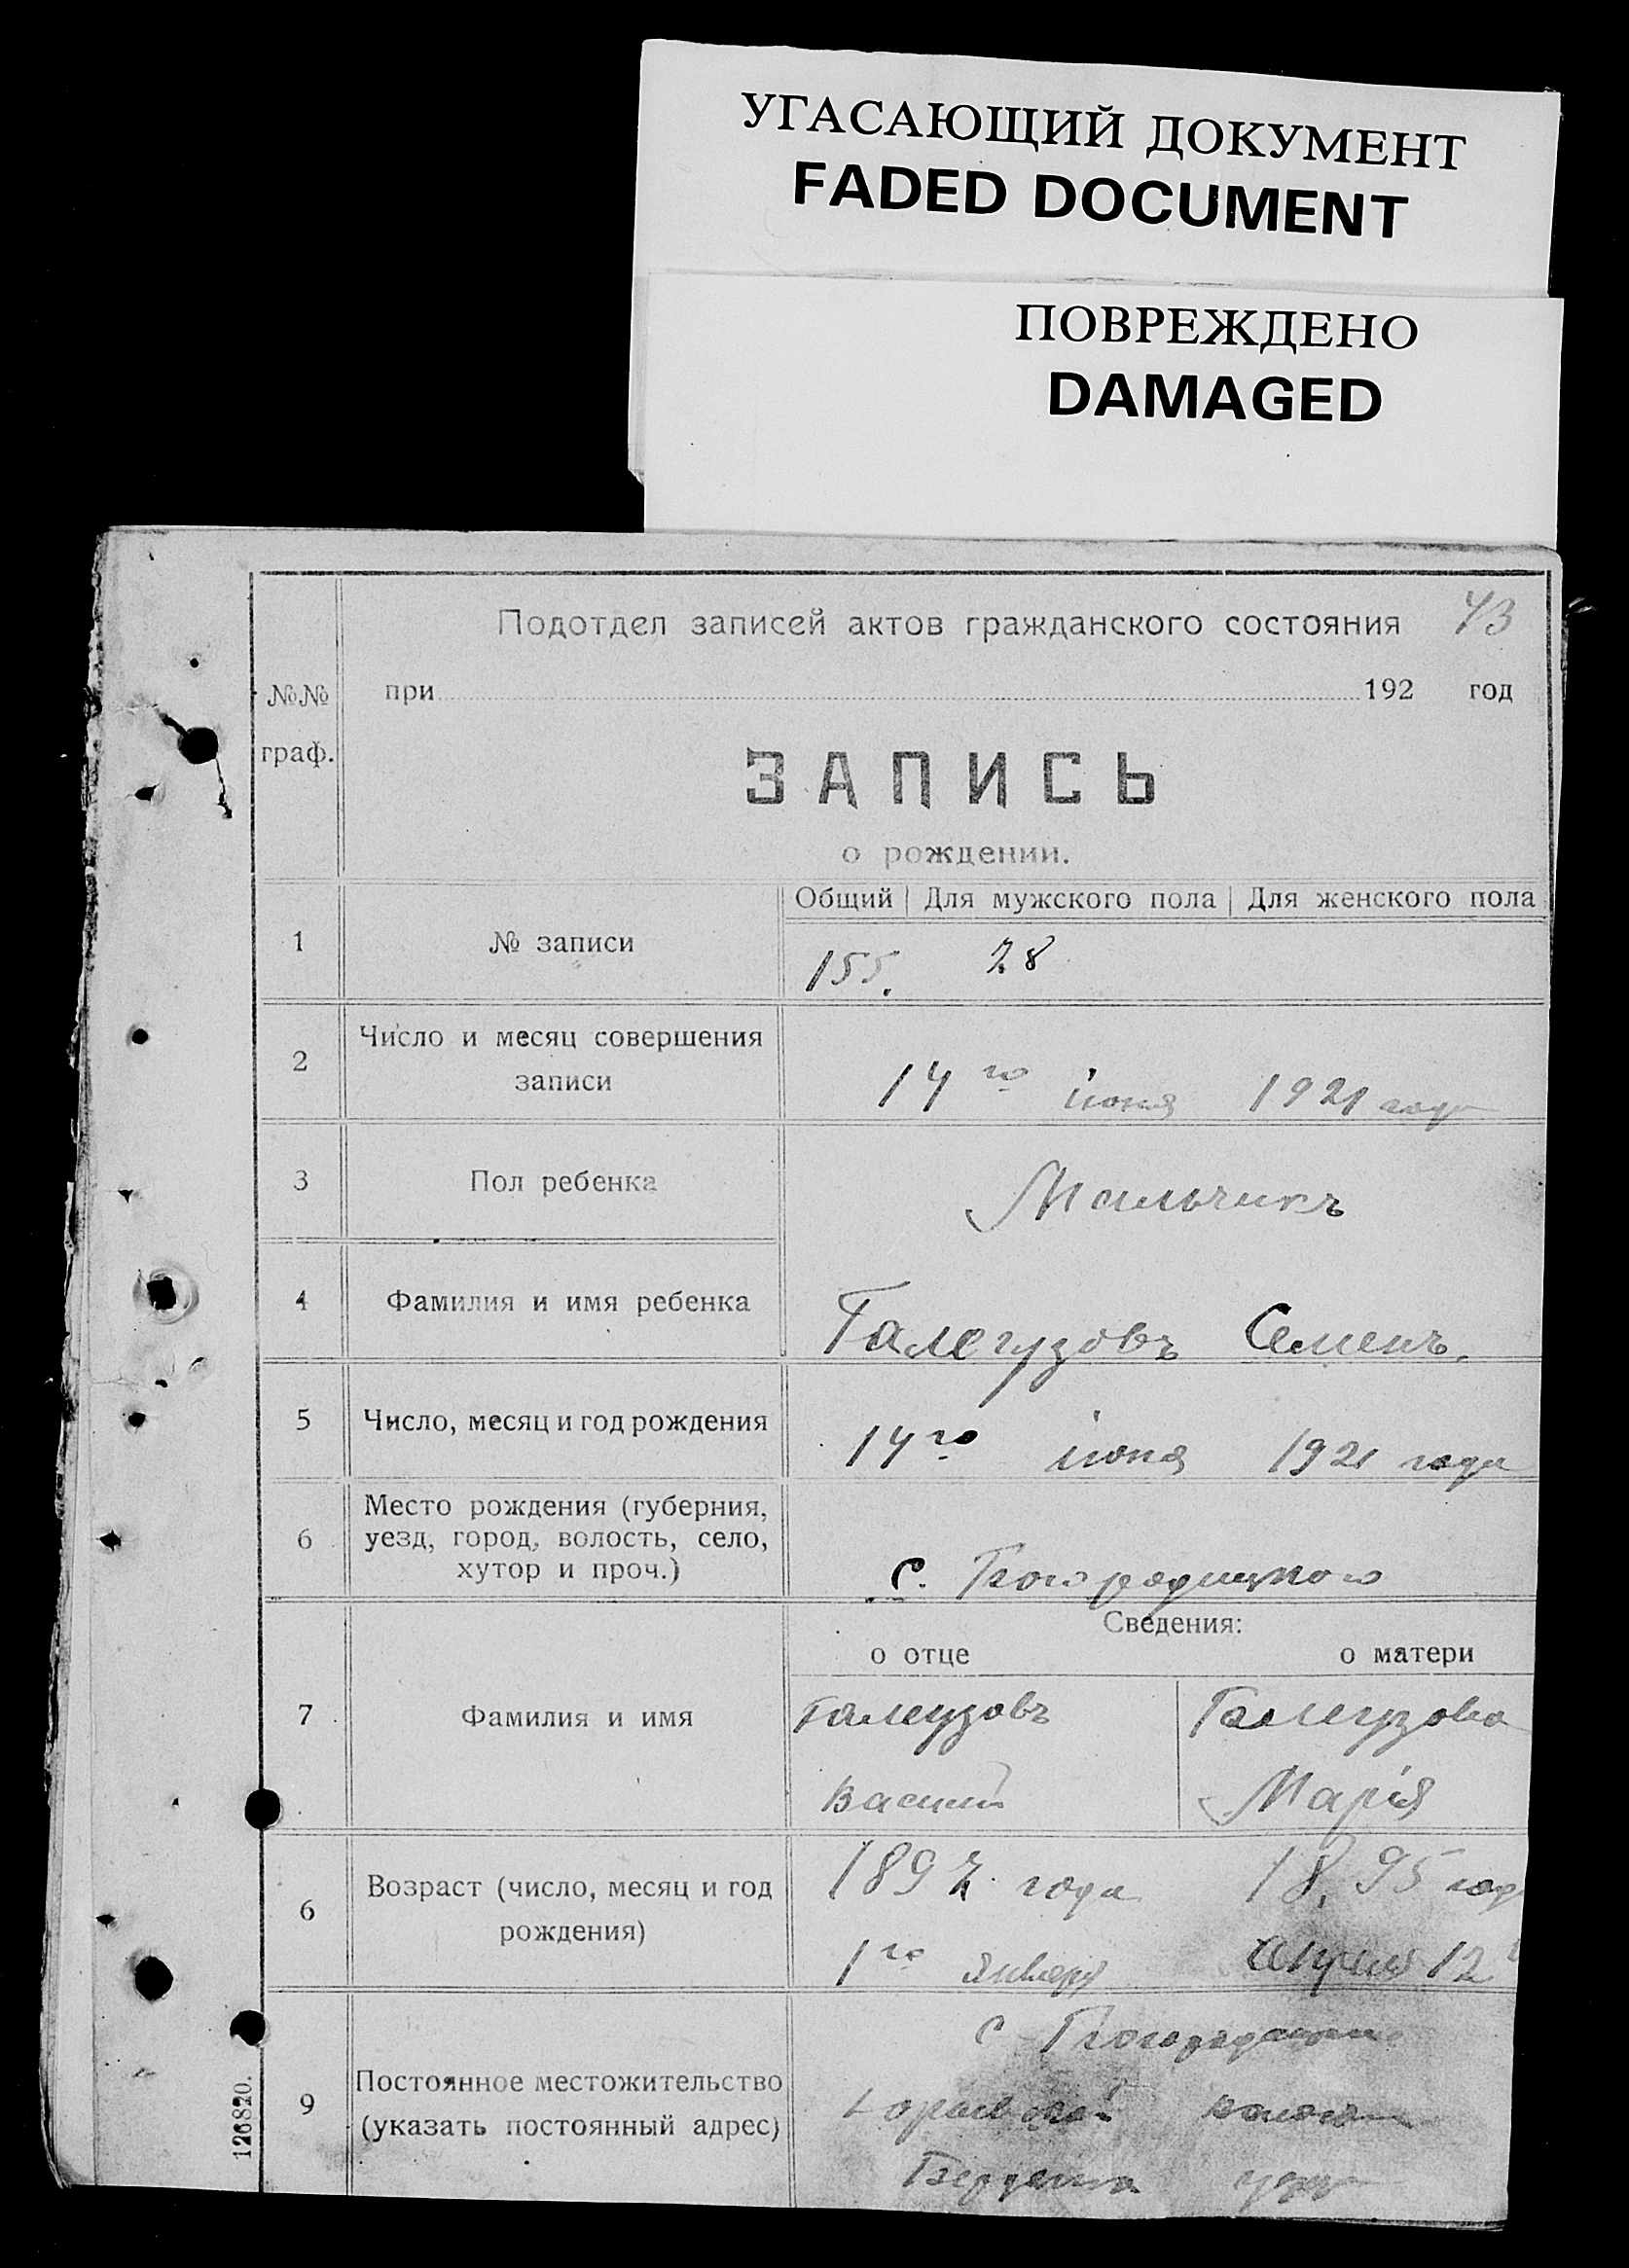 УГАСАЮЩИЙ ДОКУМЕНТ
FADED DOCUMENT
ПОВРЕЖДЕНО
DAMAGED
Подотдел записей актов гражданского состояния 43
№№ при 192 год
граф.
ЗАПИСЬ
о рождении.
Общий Для мужского пола Для женского пола
1 № записи
155. 28
2 Число и месяц совершения
записи
14го іюня 1921 года
3 Пол ребенка Мальчикъ
4 Фамилия и имя ребенка
Галегузовъ Семенъ.
5 Число, месяц и год рождения
14го іюня 1921 года
Место рождения (губерния,
6 уезд, город, волость, село,
хутор и проч.)
С. Богородицкого
Сведения:
о отце о матери
7 Фамилия и имя
Галегузовъ Галегузова
Василий Марія
1892 года 1895 год
6 Возраст (число, месяц и год
рождения)
1го января апреля 12
С
9 Постоянное местожительство
(указать постоянный адрес)
126820.